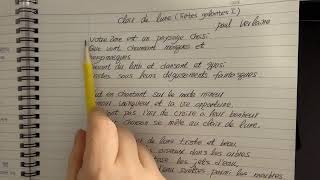 Clair de lune (Fêtes galantes I)
Paul Verlaine
Votre âme est un paysage choisi
Que vont charmant masques et
bergamasques
du luth et dansant et quasi
sous leurs déguisements fantasques.
en chantant sur le mode mineur
vainqueur et la vie opportune,
pas l'air de croire à leur bonheur
chanson se mêle au clair de lune.
de lune triste et beau,
les oiseaux dans les arbres
les jets d'eau,
sveltes parmi les marbres